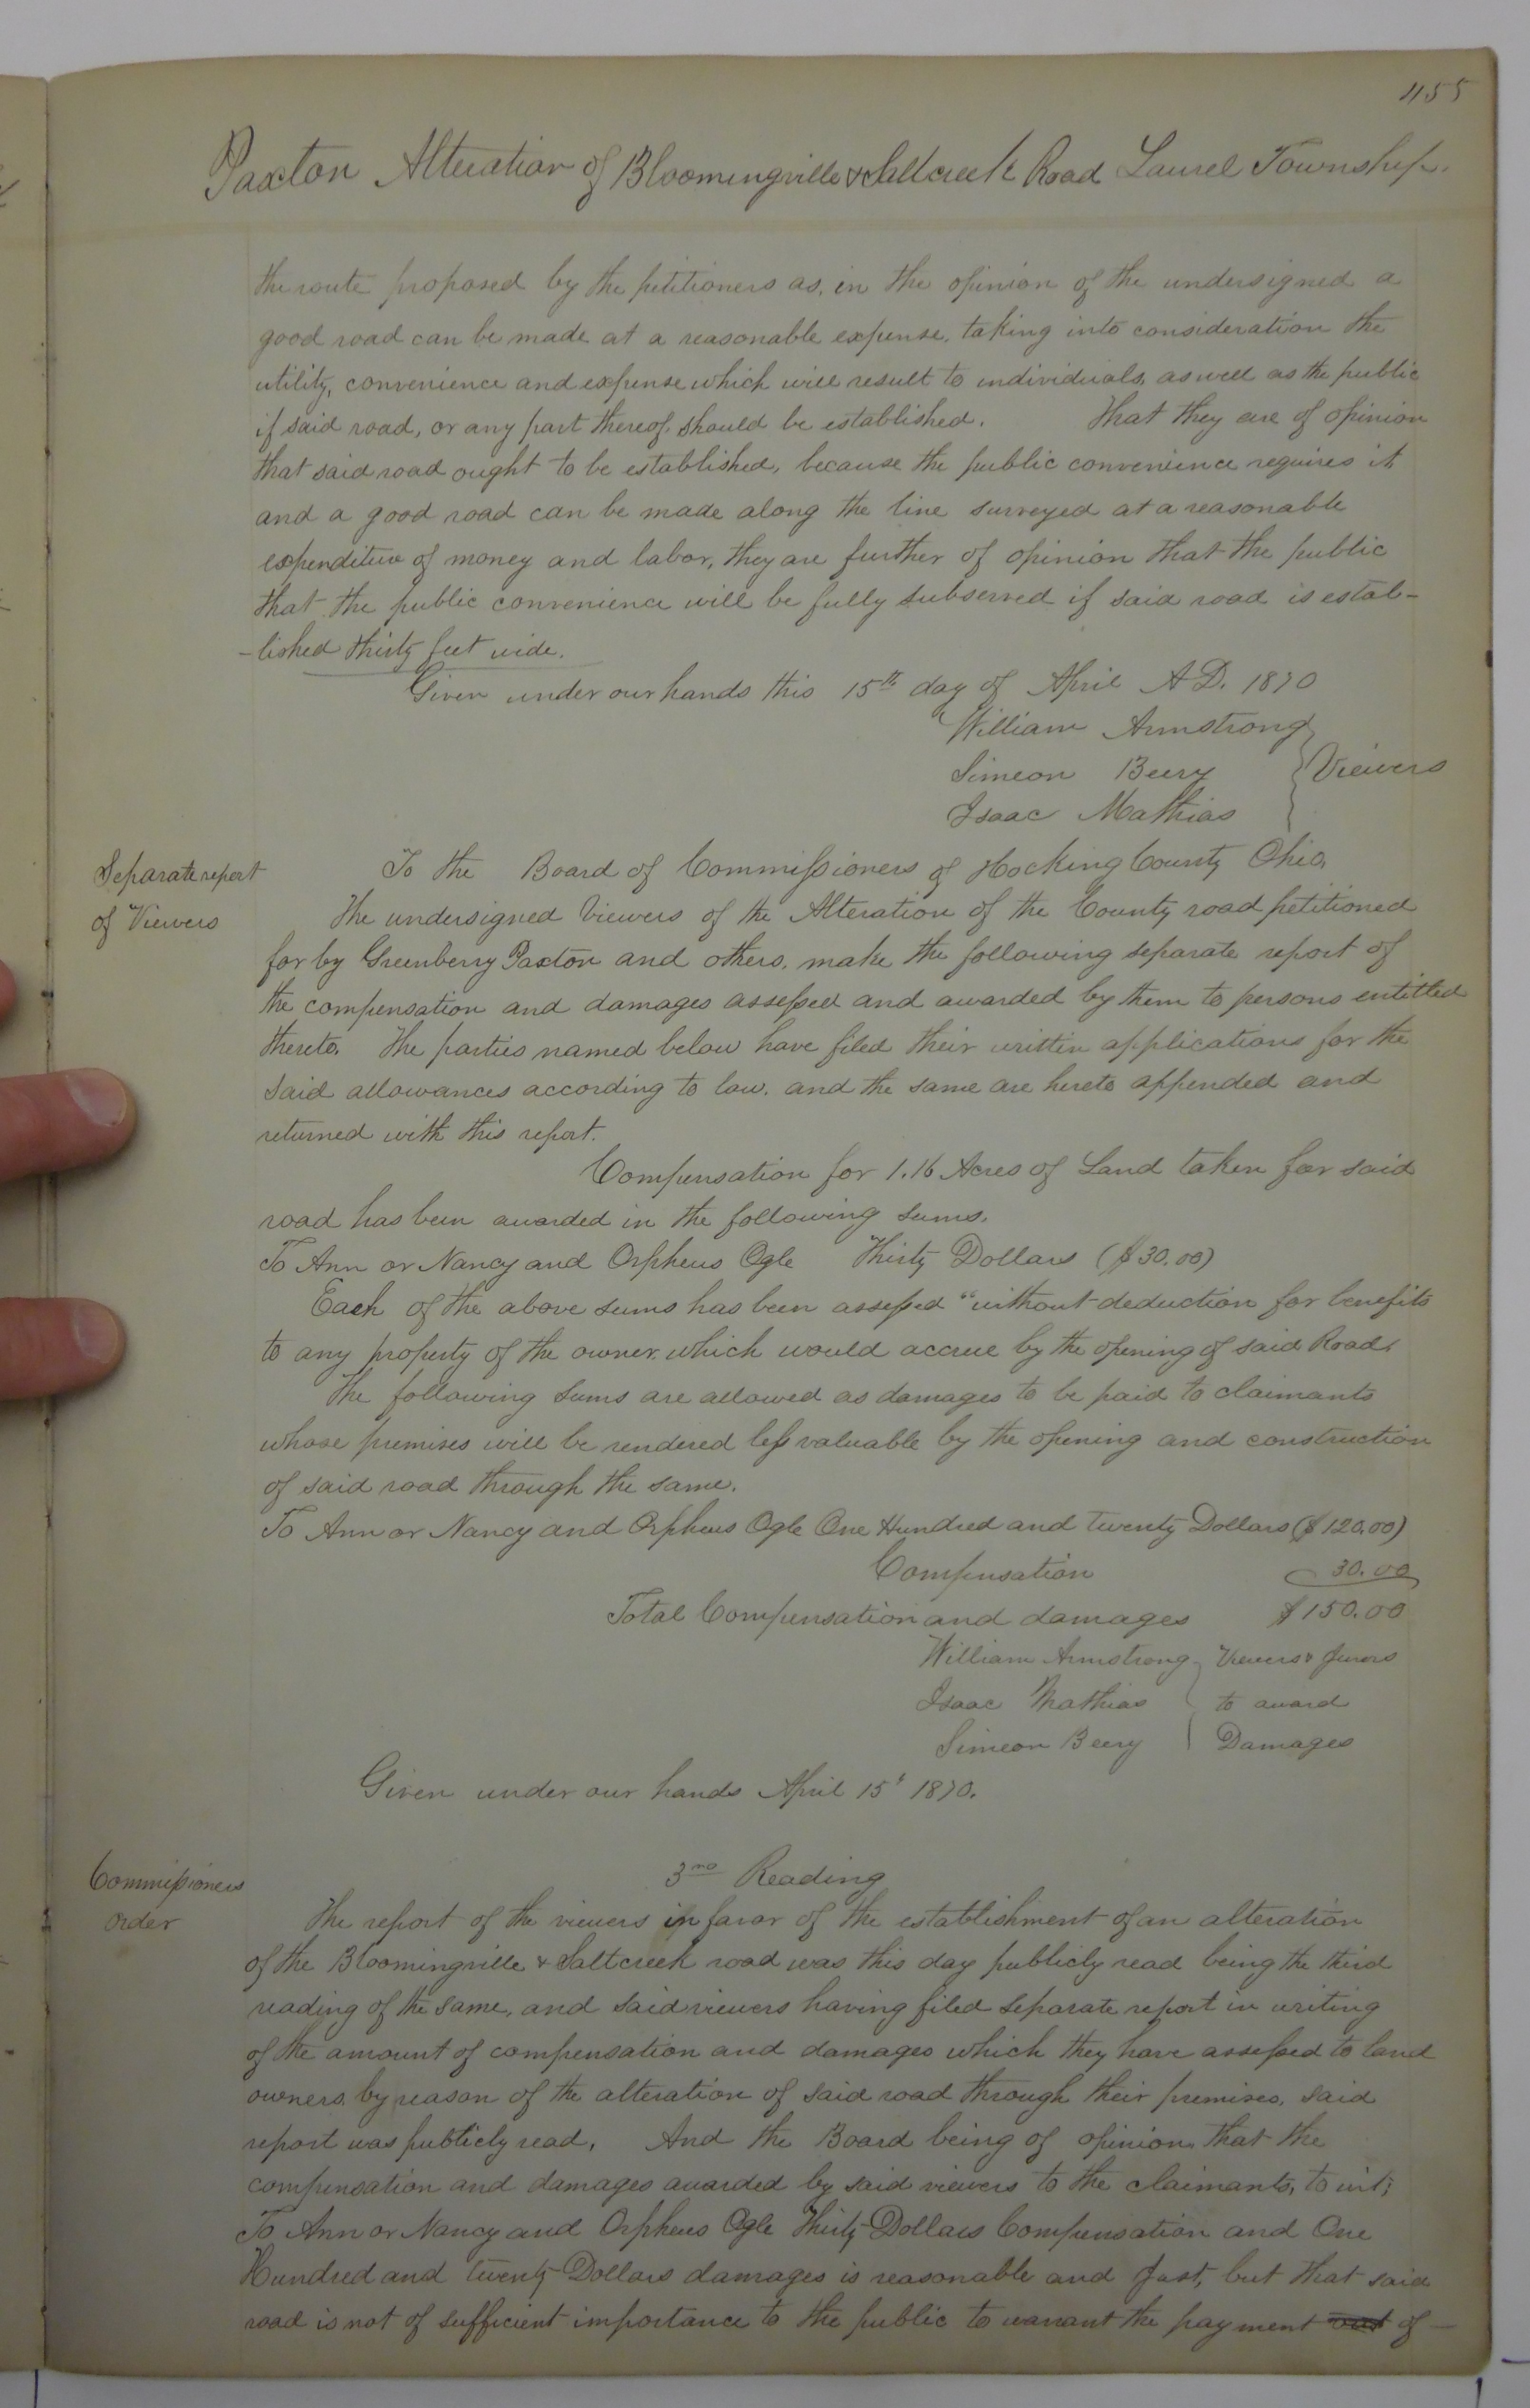 455
Paxton Alteration of Bloomingville & Saltcreek Road Laurel Township.
the route proposed by the petitioners as, in the opinion of the undersigned a
good road can be made at a reasonable expense, taking into consideration the
utility, convenience and expense which will result to individuals, as well as the public
if said road, or any part thereof, should be established. That they are of opinion
that said road ought to be established, because the public convenience requires it,
and a good road can be made along the line surveyed at a reasonable
expenditure of money and labor, they are further of opinion that the public
that the public convenience will be fully subserved if said road is estab-
-lished thirty feet wide.
Given under our hands this 15th day of April A.D. 1870
William Armstrong
Simeon Beery } Viewers
Isaac Mathias
Separate report
of Viewers
To the Board of Commissioners of Hocking County Ohio,
The undersigned Viewers of the Alteration of the County road petitioned
for by Greenberry Paxton and others, make the following separate report of
the compensation and damages assessed and awarded by them to persons entitled
thereto. The parties named below have filed their written applications for the
said allowances according to law, and the same are hereto appended and
returned with this report.
Compensation for 1.16 Acres of Land taken for said
road has been awarded in the following sums.
To Ann or Nancy and Orpheus Ogle Thirty Dollars ($30.00)
Each of the above sums has been assessed "without deduction for benefits
to any property of the owner, which would accrue by the opening of said Road.
The following sums are allowed as damages to be paid to claimants
whose premises will be rendered less valuable by the opening and construction
of said road through the same.
To Ann or Nancy and Orpheus Ogle One Hundred and twenty Dollars ($120.00)
Compensation 30.00
Total Compensation and damages $150.00
William Armstrong } Viewers & Jurors
Isaac Mathias } to award
Simeon Beery } Damages
Given under our hands April 15th 1870.
Commissioners
order
3rd Reading
The report of the viewers in favor of the establishment of an alteration
of the Bloomingville & Saltcreek road was this day publicly read being the third
reading of the same, and said viewers having filed separate report in writing
of the amount of compensation and damages which they have assessed to land
owners by reason of the alteration of said road through their premises, said
report was publicly read. And the Board being of opinion that the
compensation and damages awarded by said viewers to the claimants, to wit;
To Ann or Nancy and Orpheus Ogle Thirty Dollars Compensation and One
Hundred and twenty Dollars damages is reasonable and just, but that said
road is not of sufficient importance to the public to warrant the payment of